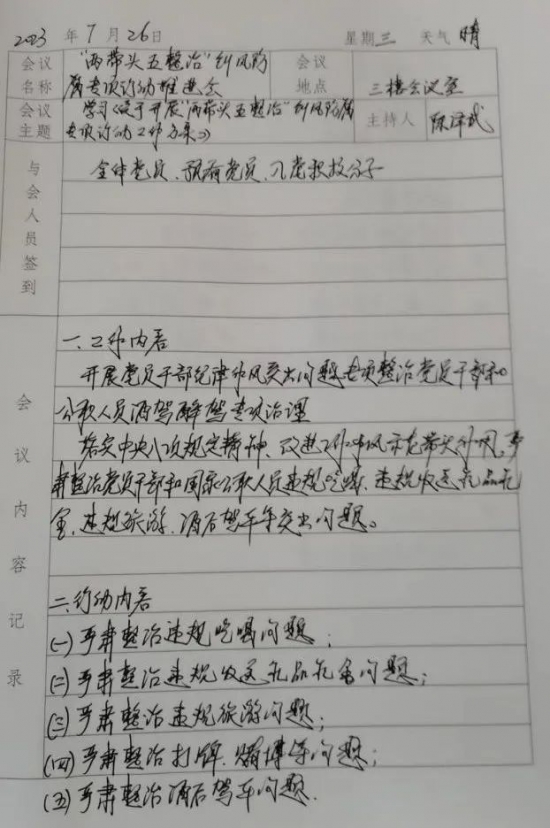 2023 年 7 月 26 日 星期 三 天气 晴
会议名称 "两带头五整治"纠风防腐专项行动推进会 会议地点 三楼会议室
会议主题 学习《关于开展"两带头五整治"纠风防腐专项行动工作方案》 主持人
与会人员签到
全体党员、预备党员、入党积极分子
会议内容记录
一、工作内容
开展党员干部纪律作风突出问题专项整治党员干部和
公职人员酒驾醉驾专项治理
落实中央八项规定精神、改进工作作风示范带头作风,严
肃整治党员干部和国家公职人员违规吃喝、违规收送礼品礼
金、违规旅游、酒后驾车等突出问题。
二、行动内容
(一)严肃整治违规吃喝问题;
(二)严肃整治违规收送礼品礼金问题;
(三)严肃整治违规旅游问题;
(四)严肃整治打牌、赌博等问题;
(五)严肃整治酒后驾车问题.